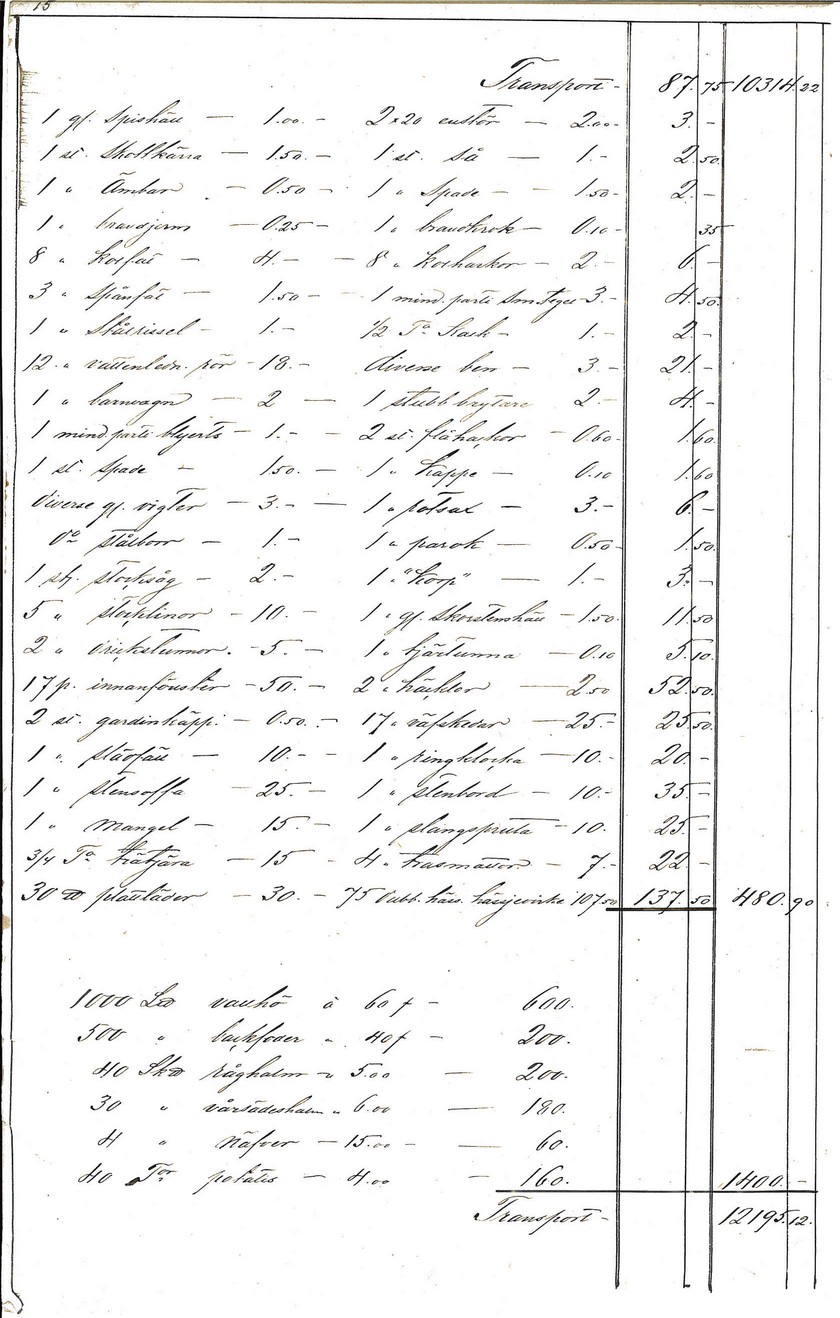 15
Transport - 87.75 10314.22
1 gl. Spishäll — 1.00 - 2 x 20 — 2.00 - 3. -
1 st. Skottkärra — 1.50 - 1 st. så — 1. - 2.50
1 " Ämbar - 0.50 - 1 " Spade - - 1.50 - 2. -
1 " brandjern - 0.25 - 1 " brandkrok - 0.10 - 35
8 " Kolfat - 4. - - 8 " Kolharkor - 2. - 6. -
3 " Spånfat - 1.50 - 1 mind. parti Sm. tegel 3. - 4.50
1 " - 1. - 1/2 Ta - 1. - 2. -
12 " vattenledn. rör - 18. - diverse ben - 3. - 21. -
1 " barnvagn — 2 — 1 stubbbrytare 2. - 4. -
1 mind. parti blyerts - 1. - - 2 st. - 0.60 - 1.60
1 st. Spade - 1.50. — 1 " Kappe — 0.10 1.60
diverse gl. vigter — 3. - — 1 " potsax — 3. - 6. -
do stålborr — 1. - 1 " — 0.50 - 1.50
1 st. stocksåg - 2. - 1 " "Korp" — 1. - 3. -
5 " stocklinor - 10. - 1 " gl. Skorstenshäll - 1.50 11.50
2 " drickstunnor. - 5. - 1 " tjärtunna — 0.10 5.10
17 p. innanfönster - 50. - 2 " häcklor — 2.50 52.50
2 st. gardinkäpp. - 0.50. - 17 "väfskedar — 25. - 25.50
1 " — 10. - - 1 " ringklocka — 10. - 20. -
1 " stensoffa — 25. - 1 " stenbord — 10. - 35. -
1 " Mangel - 15. - 1 " slangspruta - 10. 25. -
3/4 Ta trätjära — 15 - 4 " trasmattor. - 7. - 22. -
30 ℔ plattläder — 30. - 75 dubb. häss. hässjevirke 107.50 137.50 480.90
1000 L℔ vallhö à 60 f - 600.
500 " backfoder " 40 f - 200.
40 Sk℔ råghalm " 5.00 — 200.
30 " vårsädeshalm " 6.00 — 180.
4 " Näfver - 15.00 - — 60.
40 Tor potatis — 4.00 - 160. 1400. -
Transport - 12195.12.